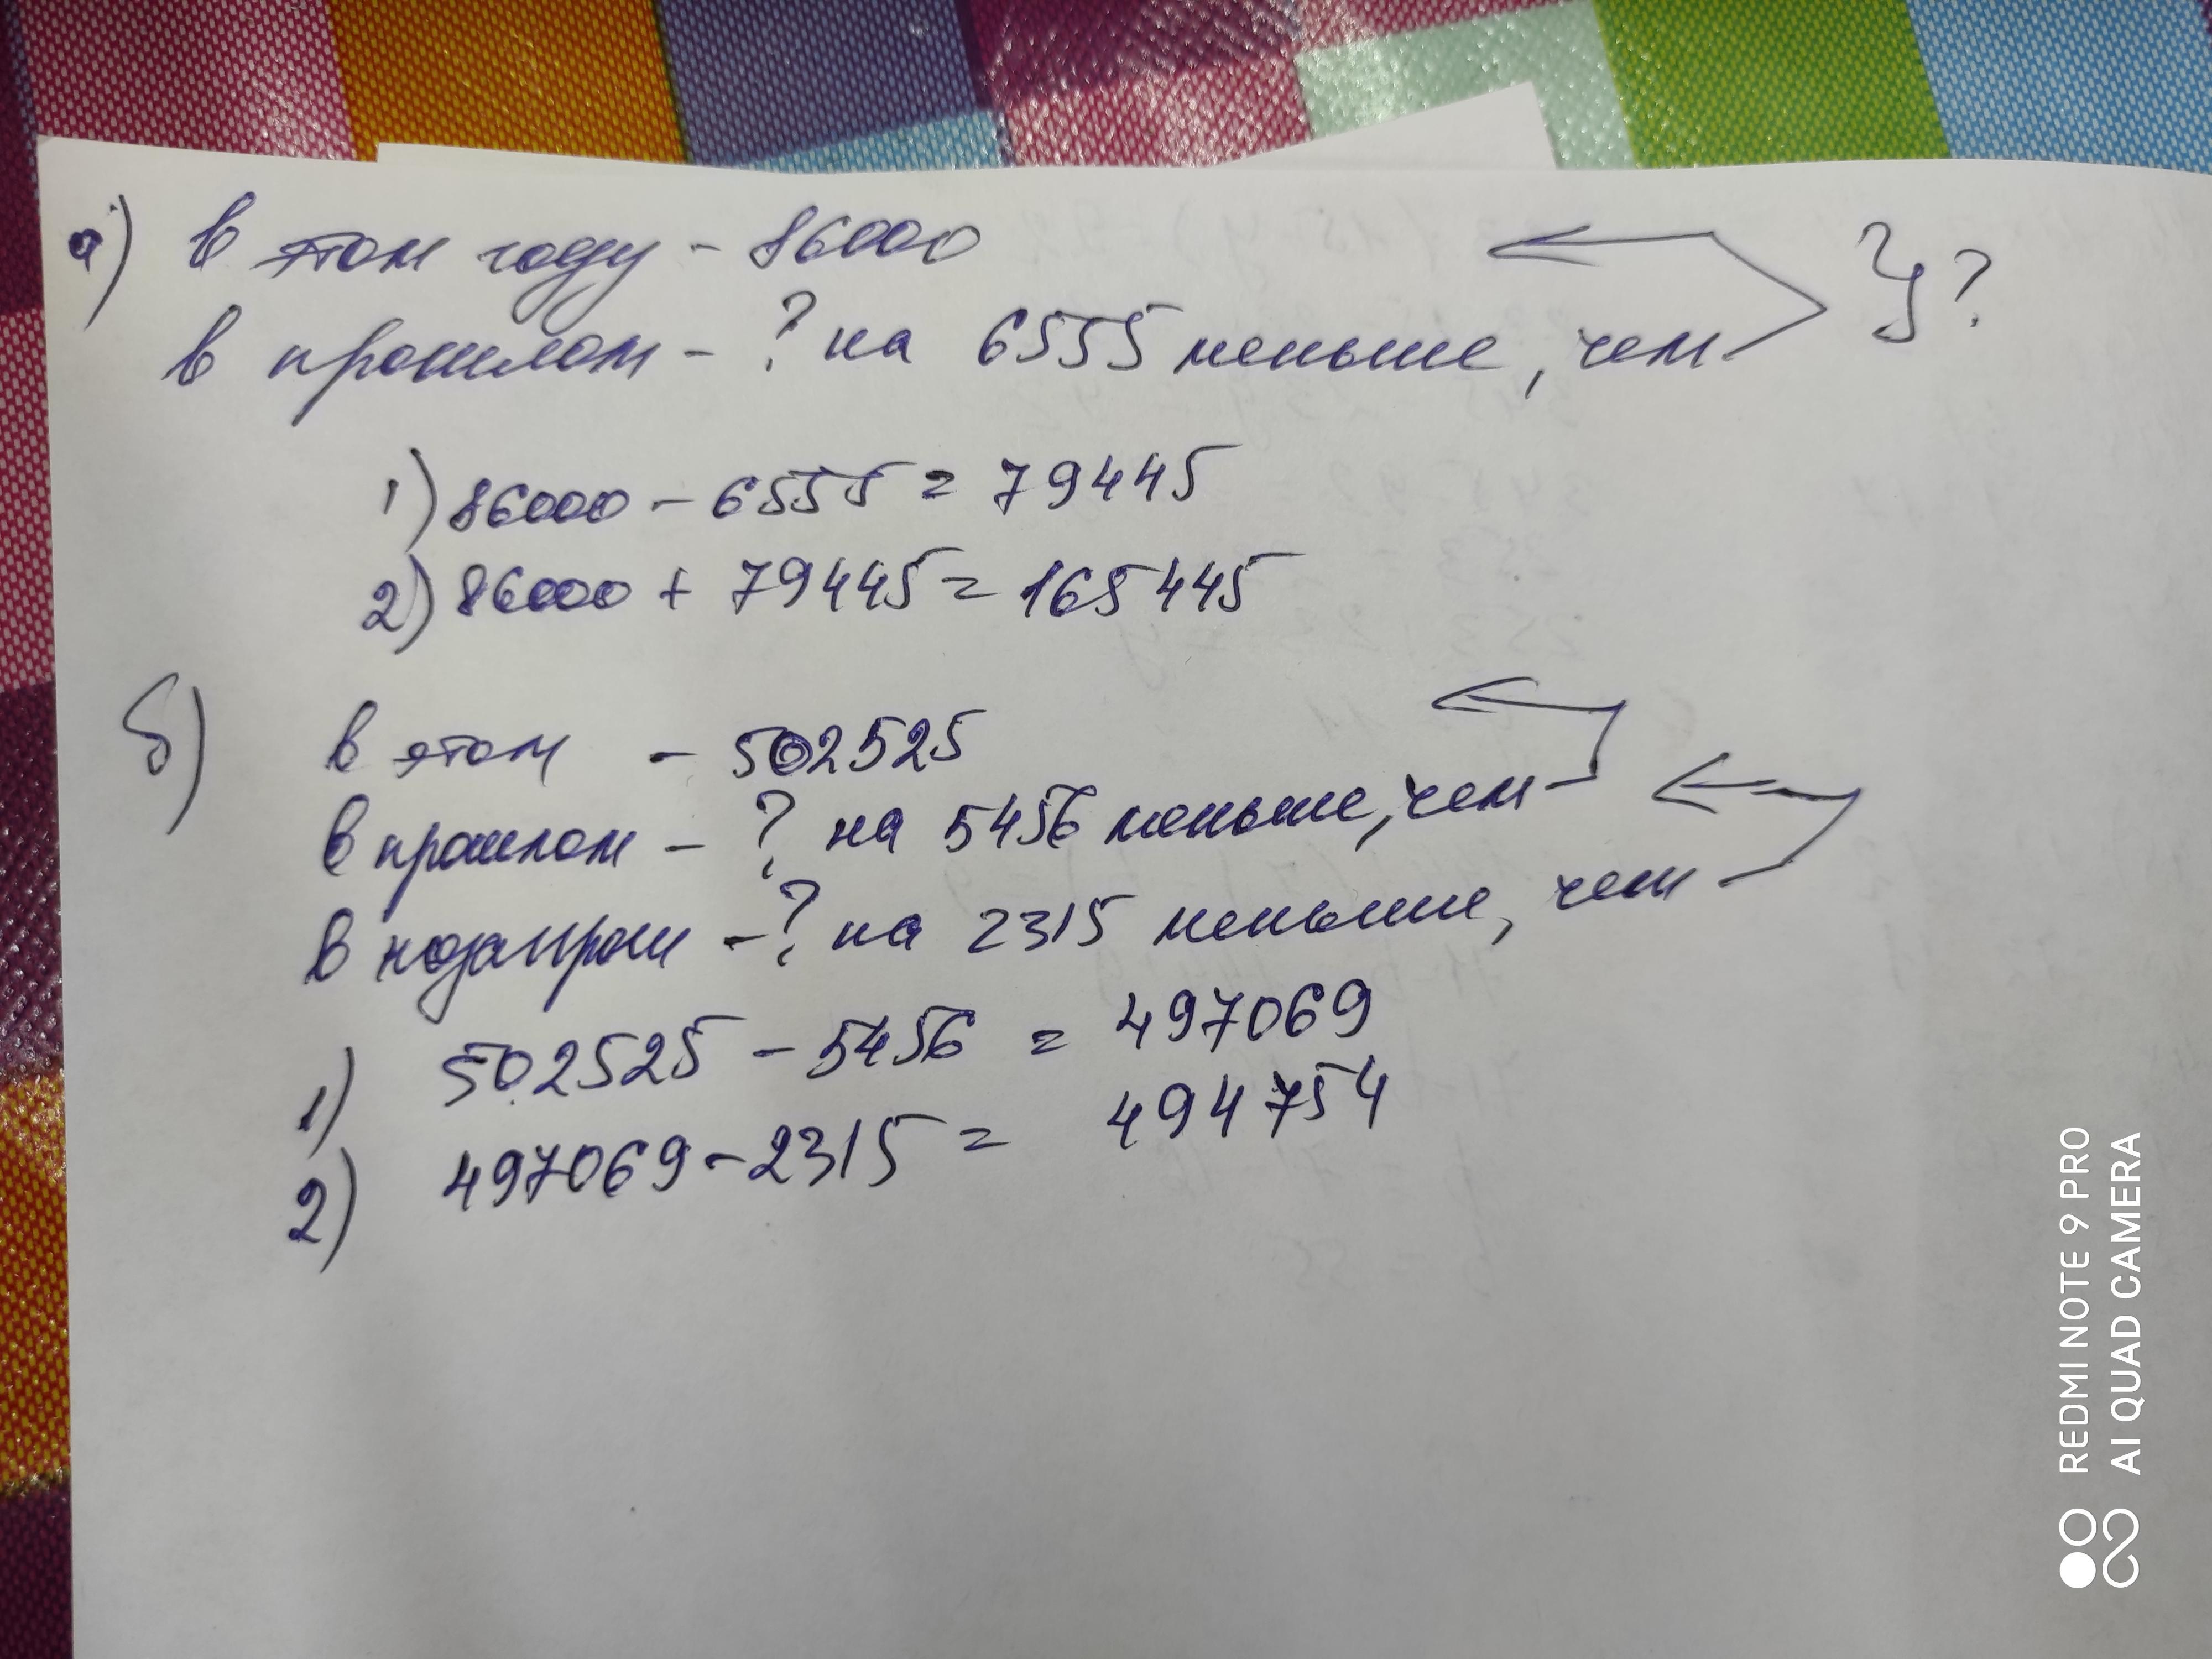 а) в этом году - 86000
в прошлом - ? на 6555 меньше, чем
?
1) 86000 - 6555 = 79445
2) 86000 + 79445 = 165445
б) в этом - 502525
в прошлом - ? на 5456 меньше, чем
в позапрош - ? на 2315 меньше, чем
1) 502525 - 5456 = 497069
2) 497069 - 2315 = 494754
REDMI NOTE 9 PRO
AI QUAD CAMERA